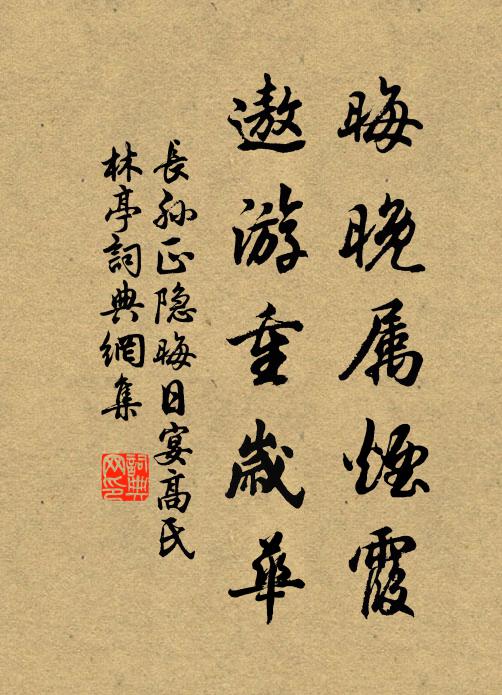 晦晚属烟霞
遨游重岁華
長孙正隐晦日宴高氏
林亭詞典網集
詞典网印